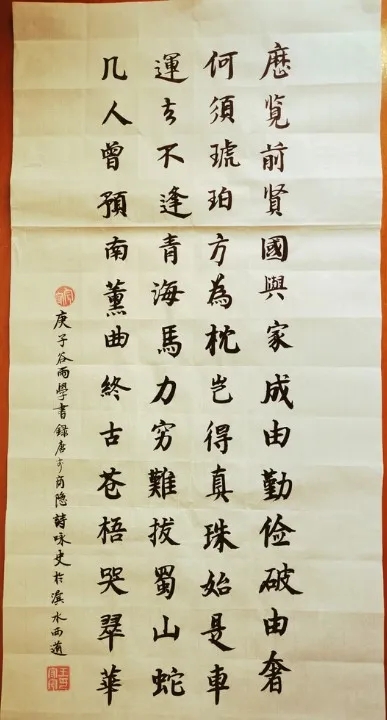 歷览前賢國與家成由勤俭破由奢
何須琥珀方為枕岂得真珠始是車
運去不逢青海馬力穷難拔蜀山蛇
几人曾預南薰曲終古苍梧哭翠華
庚子谷雨學書録唐李商隐詩咏史於滨水